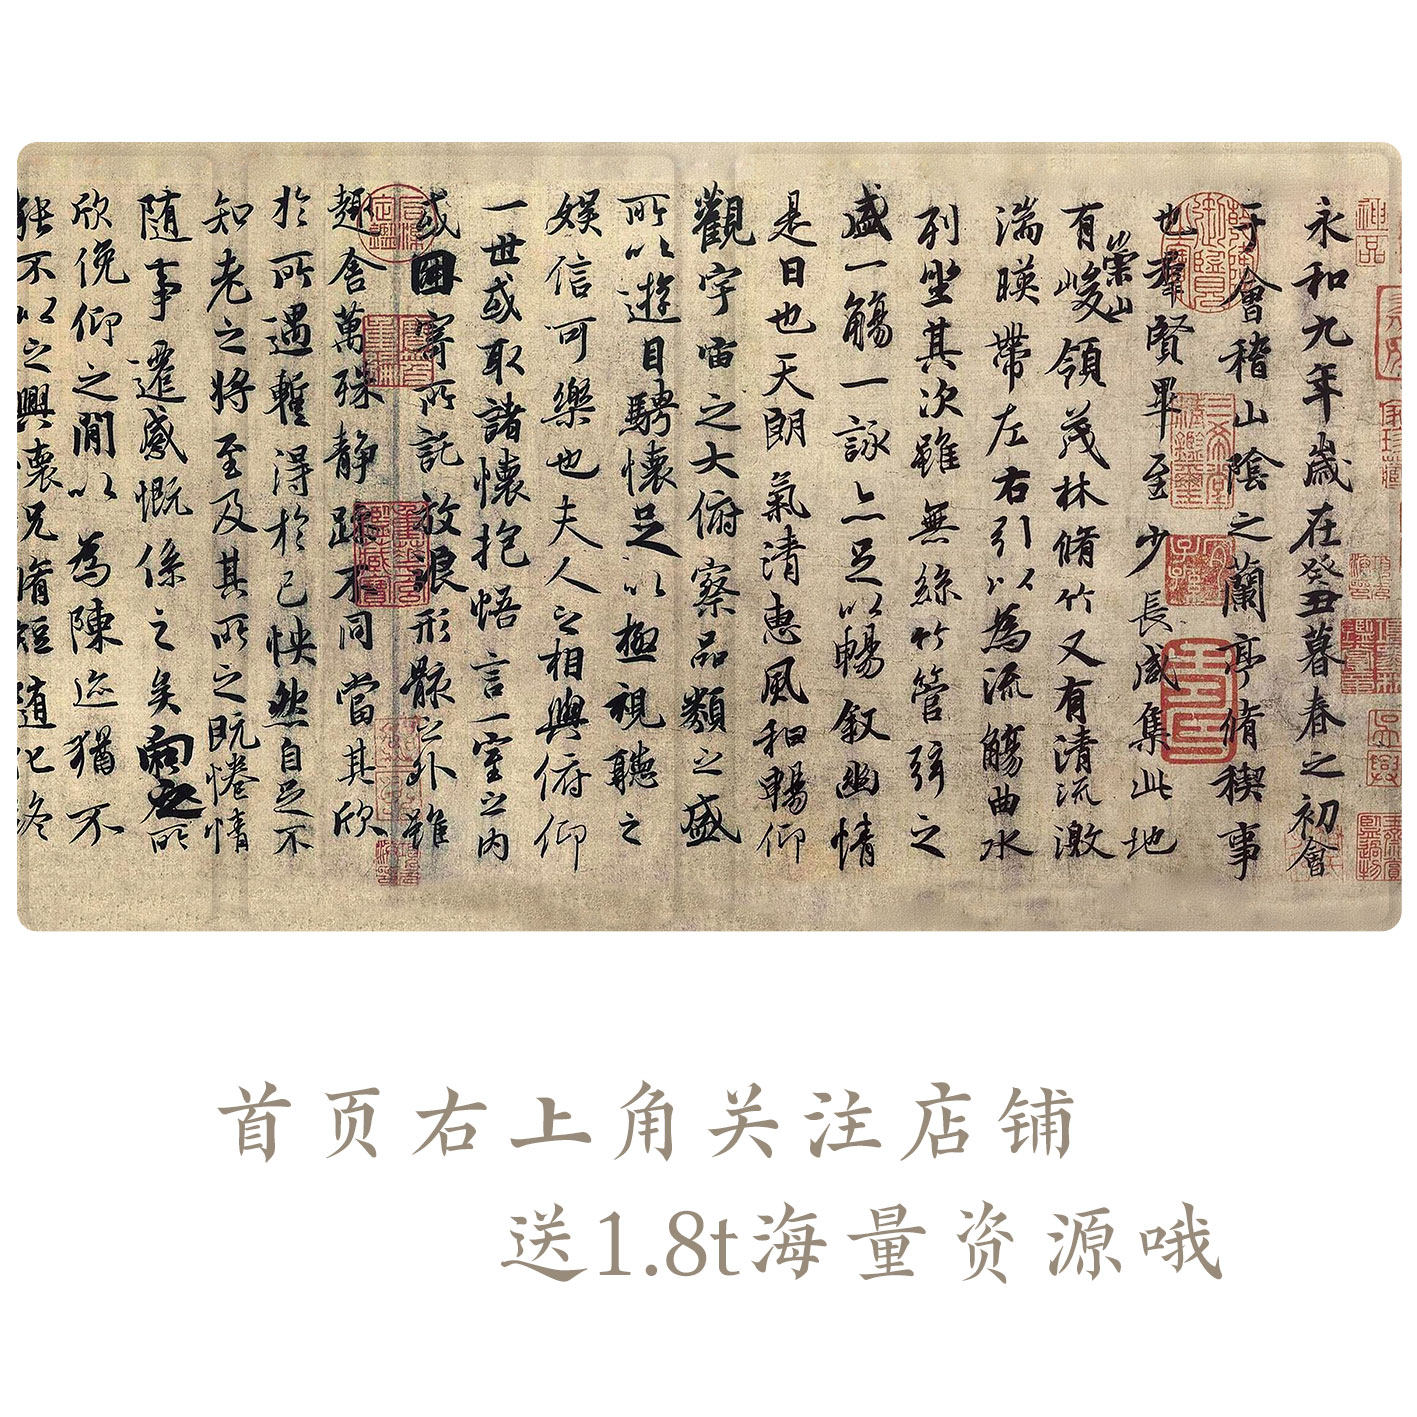 永和九年歲在癸丑暮春之初會
于會稽山陰之蘭亭脩稧事
也羣賢畢至少長咸集此地
有崇山峻領茂林脩竹又有清流激
湍暎帶左右引以為流觴曲水
列坐其次雖無絲竹管弦之
盛一觴一詠亦足以暢叙幽情
是日也天朗氣清惠風和暢仰
觀宇宙之大俯察品類之盛
所以遊目騁懷足以極視聽之
娛信可樂也夫人之相與俯仰
一世或取諸懷抱悟言一室之內
或因寄所託放浪形骸之外雖
趣舍萬殊静躁不同當其欣
於所遇暫得於己怏然自足不
知老之將至及其所之既惓情
隨事遷感慨係之矣向之所
欣俛仰之閒以為陳迹猶不
能不以之興懷況脩短隨化終
神品
首页右上角关注店铺
送1.8t海量资源哦